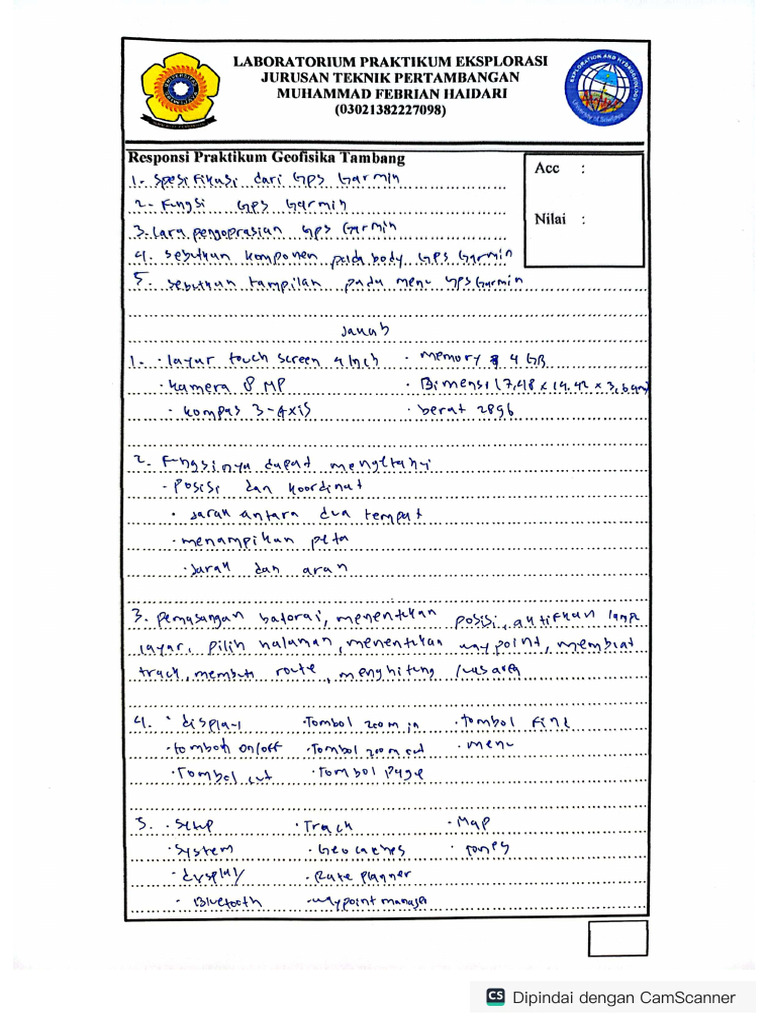 LABORATORIUM PRAKTIKUM EKSPLORASI
JURUSAN TEKNIK PERTAMBANGAN
MUHAMMAD FEBRIAN HAIDARI
(03021382227098)
EXPLORATION AND HYDROGEOLOGY
University of Sriwijaya
Responsi Praktikum Geofisika Tambang
Acc :
Nilai :
1. Spesifikasi dari GPS Garmin
2. Fungsi GPS Garmin
3. Cara pengoprasian GPS Garmin
4. Sebutkan komponen pada body GPS Garmin
5. Sebutkan tampilan pada menu GPS Garmin
Jawab
1. · layar touch screen 4 inch · Memory 4 GB
· Kamera 8 MP · Dimensi (7,48 x 14.42 x 3,6 cm)
· Kompas 3-Axis · berat 289g
2. Fungsinya dapat mengetahui
· Posisi dan Koordinat
· Jarak antara dua tempat
· menampilkan peta
· Jarak dan arah
3. Pemasangan batorai, menentukan posisi, aktifkan lampu
layar, pilih halaman, menentukan waypoint, membuat
track, membuat route, menghitung luas area
4. · display · Tombol zoom in · tombol Find
· tombol on/off · Tombol zoom out · menu
· Tombol out · Tombol Page
5. · Setup · Track · Map
· System · Geocaches
· dysplay · Rute planner
· Bluetooth · Waypoint manager
CS Dipindai dengan CamScanner